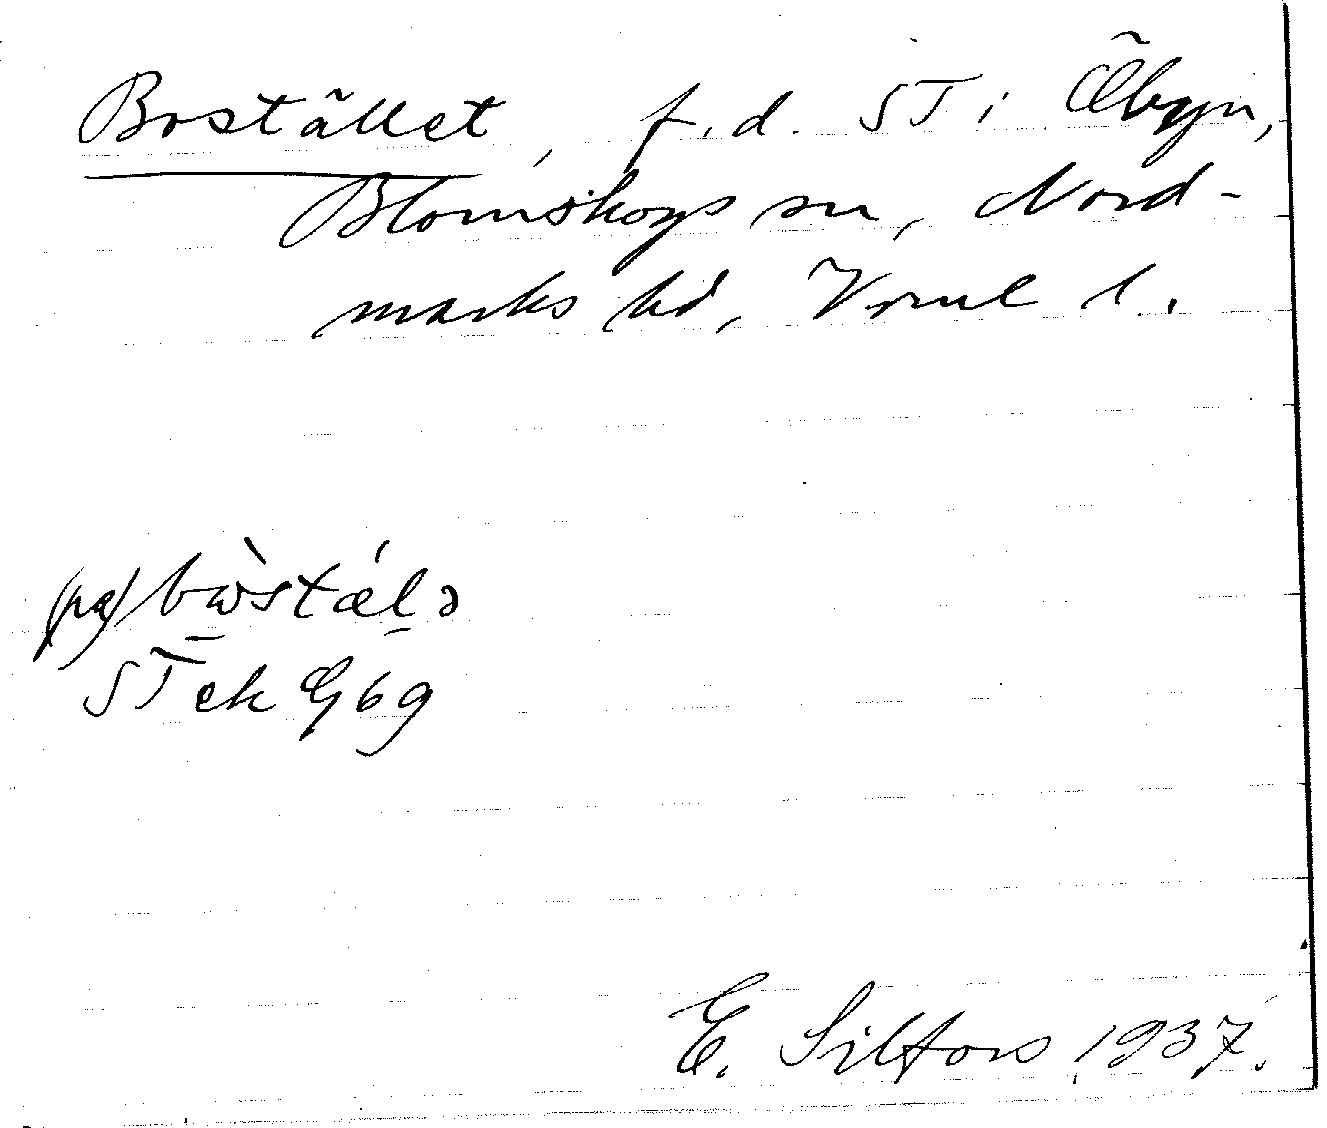 Boställlet, f.d. ST i Åbyn,
Blomskogs sn, Nord-
marks hd, Vrml l.
(pa) bωstælə
ST ek G69
E. Silfors 1937.